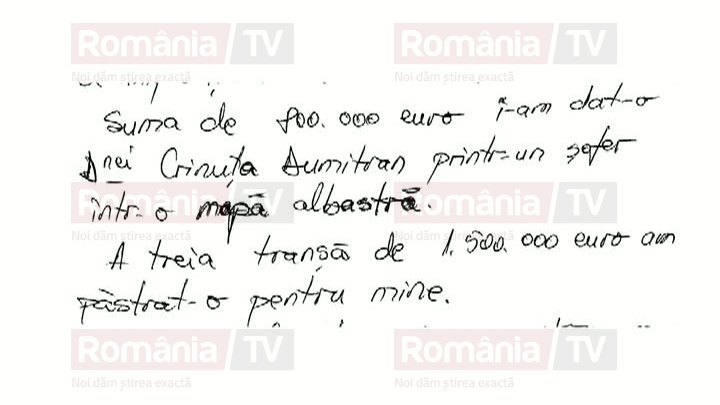 România TV România TV
Noi dăm știrea exactă Noi dăm știrea exactă
Suma de 800.000 euro i-am dat-o
Dnei Crinuța Dumitran printr-un șofer
într-o mapă albastră.
România TV România TV
Noi dăm știrea exactă Noi dăm știrea exactă
A treia tranșă de 1.500.000 euro am
păstrat-o pentru mine.
România TV România TV
Noi dăm știrea exactă Noi dăm știrea exactă